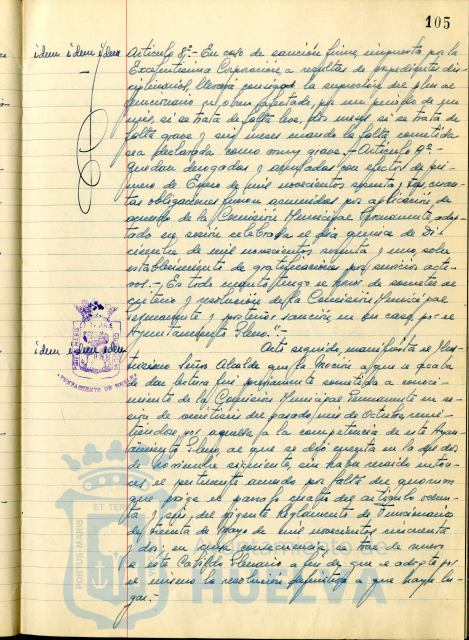 105
idem idem idem Artículo 8º.- En caso de sanción firme, impuesta por la
Excelentísima Corporación, a resultas de expediente dis-
ciplinario, llevará consigo la supresión del plus al
funcionario en obra afectado, por un periodo de un
mes, si se trata de falta leve, tres meses si se trata de
falta grave y seis meses cuando la falta cometida
sea declarada como muy grave.- Artículo 9º.-
Quedan derogadas y anuladas, con efectos de pri-
mero de Enero de mil novecientos sesenta y tres, cuan-
tas obligaciones fueron asumidas por aplicación de
acuerdo de la Comisión Municipal Permanente, adop-
tado en sesión celebrada el día quince de Di-
ciembre de mil novecientos sesenta y uno, sobre
establecimiento de gratificaciones por servicios acti-
vos.- Es todo cuanto tengo el honor de someter al
criterio y resolución de la Comisión Municipal
Permanente y posterior sanción, en su caso, por el
Ayuntamiento Pleno."-
idem idem idem Acto seguido, manifiesta el Ilus-
trísimo Señor Alcalde que la Moción a que se acaba
de dar lectura fué previamente sometida a conoci-
miento de la Comisión Municipal Permanente en se-
sión de veintiseis del pasado mes de Octubre, remi-
tiéndose por aquella a la competencia de este Ayun-
tamiento Pleno, al que se dejó cuenta en la de dos
de Noviembre siguiente, sin haber recaido enton-
ces el pertinente acuerdo por falta del quorum
que exige el párrafo cuarto del artículo ochen-
ta y seis del vigente Reglamento de Funcionarios
de treinta de Mayo de mil novecientos cincuenta
y dos, en cuya consecuencia se trae de nuevo
a este Cabildo Plenario a fin de que se adopte por
el mismo la resolución definitiva a que haya lu-
gar.-
AYUNTAMIENTO DE HUELVA
PORTUS MARIS
ET TERRE
HUELVA